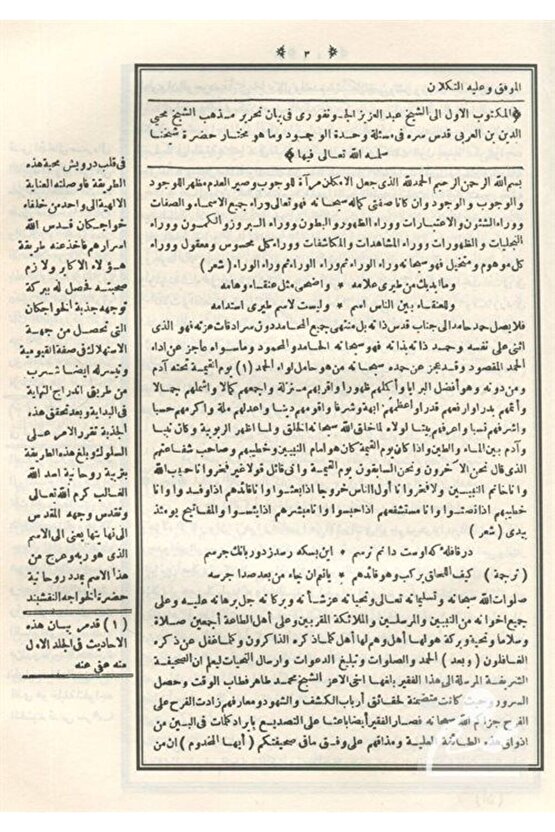 ﴿ ٣ ﴾
الموفق وعليه التكلان
﴿ المكتوب الاول الى الشيخ عبد العزيز الجونفورى فى بيان تحرير مذهب الشيخ محيى
الدين بن العربى قدس سره فى مسئلة وحدة الوجود وما هو مختار حضرة شيخنا
سلمه الله تعالى فيها ﴾
بسم الله الرحمن الرحيم الحمد لله الذى جعل الامكان مرآة للوجوب وصير العدم مظهر للوجود
والوجوب والوجود وان كانا صفتى كماله سبحانه فهو تعالى وراء جميع الاسماء والصفات
ووراء الشئون والاعتبارات ووراء الظهور والبطون ووراء البروز والكمون ووراء
التجليات والظهورات ووراء المشاهدات والمكاشفات ووراء كل محسوس ومعقول ووراء
كل موهوم ومتخيل فهو سبحانه وراء الوراء ثم وراء الوراء ثم وراء الوراء ( شعر )
وما ابديك من طيرى علامه * واضحى مثل عنقاء وهامه
وللعنقاء بين الناس اسم * وليست لاسم طيرى استدامه
فلا يصل حمد حامد الى جناب قدس ذاته بل منتهى جميع المحامد دون سرادقات عزته فهو الذى
اثنى على نفسه وحمد ذاته بذاته فهو سبحانه الحامد والمحمود وما سواه عاجز عن اداء
الحمد المقصود وقد عجز عن حمده سبحانه من هو حامل لواء الحمد (١) يوم القيمة تحته آدم
ومن دونه وهو أفضل البرايا وأكملهم ظهورا واقربهم منزلة واجمعهم كمالا واشملهم جمالا
وأتمهم بدرا وارفعهم قدرا واعظمهم ابهة وشرفا واقومهم دينا واعدلهم ملة واكرمهم حسبا
واشرفهم نسبا واعرفهم بيتا لولاه لما خلق الله سبحانه الخلق ولما اظهر الربوبية وكان نبيا
وآدم بين الماء والطين واذا كان يوم القيمة كان هو امام النبيين وخطيبهم وصاحب شفاعتهم
الذى قال نحن الآخرون ونحن السابقون يوم القيمة وانى قائل قولا غير فخر وانا حبيب الله
وانا خاتم النبيين ولا فخر وانا أول الناس خروجا اذا بعثوا وانا قائدهم اذا وفدوا وانا
خطيبهم اذا انصتوا وانا مستشفعهم اذا حبسوا وانا مبشرهم اذا يئسوا والمفاتيح يومئذ
بيدى ( شعر )
در قافلهٔ كه اوست دانم نرسم * اين بسكه رسد ز دور بانك جرسم
( ترجمة ) كيف اللحاق بركب وهو قائدهم *
صلوات الله سبحانه وتسليماته تعالى وتحياته عز شأنه وبركاته جل برهانه عليه وعلى
جميع اخوانه من النبيين والمرسلين والملائكة المقربين وعلى أهل الطاعة أجمعين صلاة
وسلاما وتحية وبركة هو لها أهل وهم لها أهل كلما ذكره الذاكرون وكلما غفل عن ذكره
الغافلون ( وبعد ) الحمد والصلوات وتبليغ الدعوات وارسال التحيات ليعلم ان الصحيفة
الشريفة المرسلة الى هذا الفقير بلغها اخى الاعز الشيخ محمد طاهر فطاب الوقت وحصل
السرور وحيث كانت متضمنة لحقائق أرباب الكشف والشهود ومعارفهم زادت الفرح على
الفرح جزاكم الله سبحانه فصار الفقير أيضا باعثا على التصديع بايراد كلمات فى البين من
اذواق هذه الطائفة العلية ومذاقهم على وفق ما فى صحيفتكم ( أيها المخدوم ) ان من
فى قلب درويش محبة هذه
الطريقة فاوصلته العناية
الالهية الى واحد من خلفاء
خواجكان قدس الله
اسرارهم فاخذ عنه طريقة
هؤلاء الاكابر ولازم
صحبته فحصل له ببركة
توجهه جذبة الخواجكان
التى تحصل من جهة
الاستهلاك فى صفة القيومية
وتيسر له ايضا شرب
من طريق اندراج النهاية
فى البداية وبعد تحقق هذه
الجذبة تقرر الامر على
السلوك وبلغ هذه الطريقة
بتربية روحانية اسد الله
الغالب كرم الله تعالى
وتقدس وجهه المقدس
الى نهايتها يعنى الى الاسم
الذى هو ربه وعرج من
هذا الاسم بمدد روحانية
حضرة الخواجه النقشبند
(١) قد مر بيان هذه
الاحاديث فى الجلد الاول
منه عفى عنه